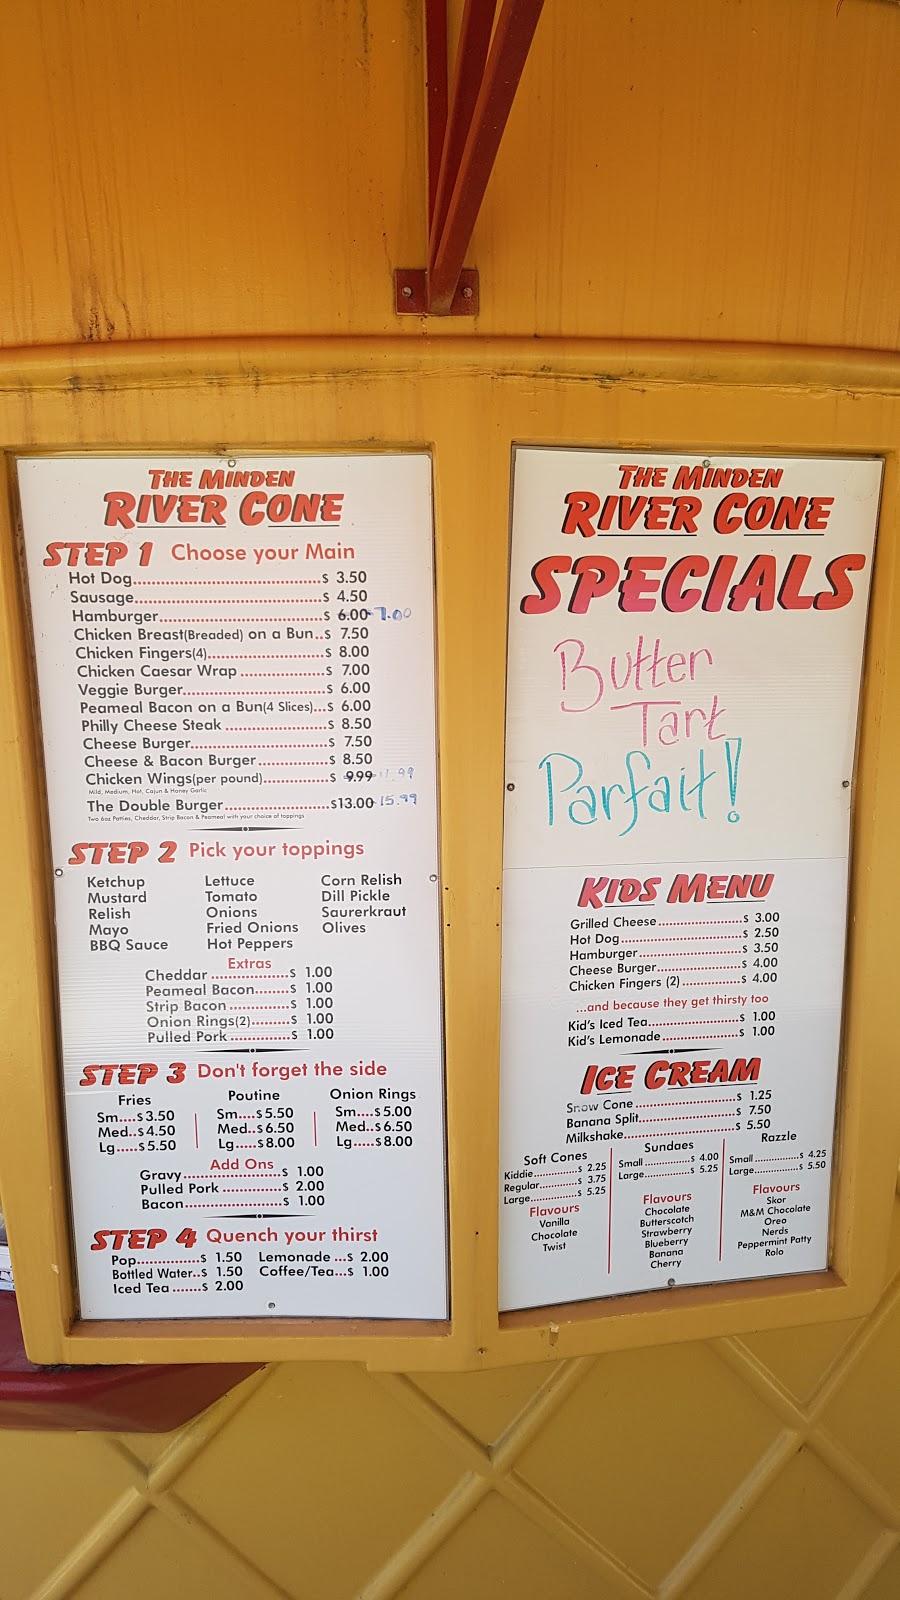 THE MINDEN
RIVER CONE
STEP 1 Choose your Main
Hot Dog..........$ 3.50
Sausage..........$ 4.50
Hamburger..........$ 6.00 7.00
Chicken Breast(Breaded) on a Bun..$ 7.50
Chicken Fingers(4)..........$ 8.00
Chicken Caesar Wrap ..........$ 7.00
Veggie Burger..........$ 6.00
Peameal Bacon on a Bun(4 Slices)...$ 6.00
Philly Cheese Steak ..........$ 8.50
Cheese Burger..........$ 7.50
Cheese & Bacon Burger..........$ 8.50
Chicken Wings(per pound)..........$ 9.99 11.99
Mild, Medium, Hot, Cajun & Honey Garlic
The Double Burger..........$13.00 15.99
Two 6oz Patties, Cheddar, Strip Bacon & Peameal with your choice of toppings
STEP 2 Pick your toppings
Ketchup Lettuce Corn Relish
Mustard Tomato Dill Pickle
Relish Onions Saurerkraut
Mayo Fried Onions Olives
BBQ Sauce Hot Peppers
Extras
Cheddar ..........$ 1.00
Peameal Bacon........$ 1.00
Strip Bacon ..........$ 1.00
Onion Rings(2).........$ 1.00
Pulled Pork ..........$ 1.00
STEP 3 Don't forget the side
Fries Poutine Onion Rings
Sm....$3.50 Sm....$5.50 Sm....$5.00
Med..$4.50 Med..$6.50 Med..$6.50
Lg.....$5.50 Lg.....$8.00 Lg.....$8.00
Add Ons
Gravy..........$ 1.00
Pulled Pork ..........$ 2.00
Bacon..........$ 1.00
STEP 4 Quench your thirst
Pop..........$ 1.50 Lemonade ...$ 2.00
Bottled Water..$ 1.50 Coffee/Tea...$ 1.00
Iced Tea .......$ 2.00
THE MINDEN
RIVER CONE
SPECIALS
Butter
Tart
Parfait!
KIDS MENU
Grilled Cheese..........$ 3.00
Hot Dog..........$ 2.50
Hamburger..........$ 3.50
Cheese Burger..........$ 4.00
Chicken Fingers (2) ..........$ 4.00
...and because they get thirsty too
Kid's Iced Tea..........$ 1.00
Kid's Lemonade..........$ 1.00
ICE CREAM
Snow Cone ..........$ 1.25
Banana Split..........$ 7.50
Milkshake..........$ 5.50
Soft Cones
Kiddie..........$ 2.25
Regular..........$ 3.75
Large..........$ 5.25
Flavours
Vanilla
Chocolate
Twist
Sundaes
Small ..........$ 4.00
Large..........$ 5.25
Flavours
Chocolate
Butterscotch
Strawberry
Blueberry
Banana
Cherry
Razzle
Small ..........$ 4.25
Large..........$ 5.50
Flavours
Skor
M&M Chocolate
Oreo
Nerds
Peppermint Patty
Rolo